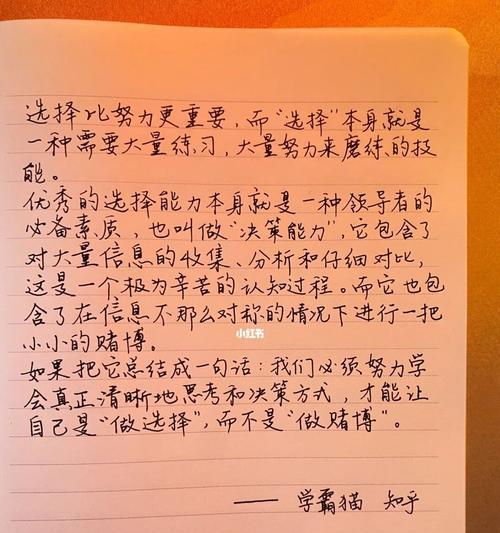 选择比努力更重要，而“选择”本身就是
一种需要大量练习，大量努力来磨练的技
能。
优秀的选择能力本身就是一种领导者的
必备素质，也叫做“决策能力”，它包含了
对大量信息的收集、分析和仔细对比，
这是一个极为辛苦的认知过程。而它也包
含了在信息不那么对称的情况下进行一把
小小的赌博。
小红书
如果把它总结成一句话：我们必须努力学
会真正清晰地思考和决策方式，才能让
自己是“做选择”，而不是“做赌博”。
—— 学霸猫 知乎